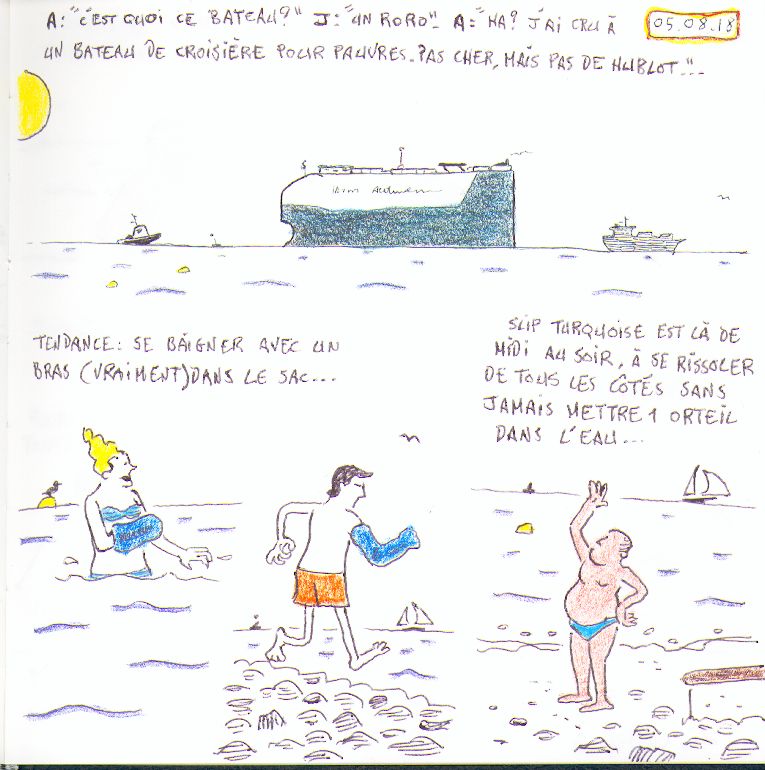 A: "C'EST QUOI CE BATEAU?" J: "UN RORO". A: "HA? J'AI CRU À
05.08.18
UN BATEAU DE CROISIÈRE POUR PAUVRES. PAS CHER, MAIS PAS DE HUBLOT"...
TENDANCE: SE BAIGNER AVEC UN
BRAS (VRAIMENT) DANS LE SAC...
SLIP TURQUOISE EST LÀ DE
MIDI AU SOIR, À SE RISSOLER
DE TOUS LES CÔTÉS SANS
JAMAIS METTRE 1 ORTEIL
DANS L'EAU...